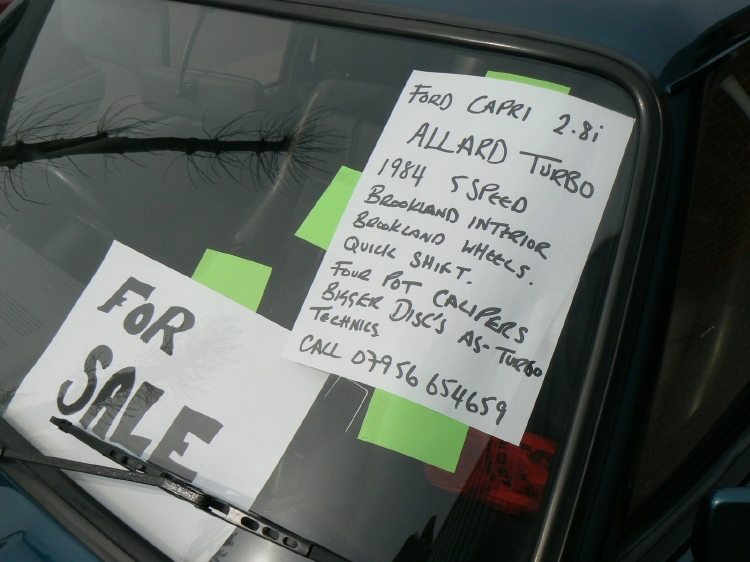 FORD CAPRI 2.8i
ALLARD TURBO
1984 5 SPEED
BROOKLAND INTERIOR
BROOKLAND WHEELS.
QUICK SHIFT.
FOUR POT CALIPERS
BIGGER DISC'S AS-TURBO
TECHNICS
CALL 07956 654659
FOR
SALE